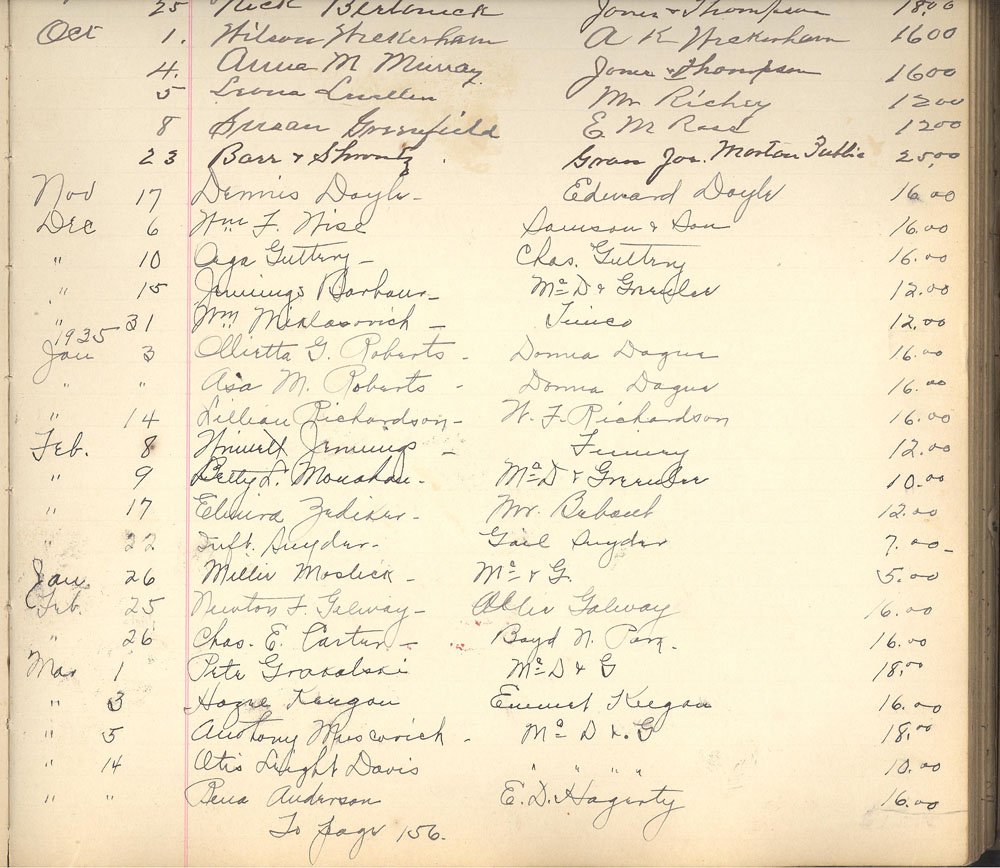 25 Nick Jones & Thompson 18.00
Oct 1. Wilson Wickerham A K Wickerham 1600
4. Anna M Murray Jones & Thompson 1600
5 Leona Luellen Mr Richey 1200
8 Susan Greenfield E M Rose 1200
23 Barr & Shwartz. Gran Jos. Morton Public 25.00
Nov 17 Dennis Doyle- Edward Doyle 16.00
Dec 6 Wm F. Wise Samson & Son 16.00
" 10 Asa Guttery- Chas. Guttery 16.00
" 15 Jennings Barbour- McD & Greenlee 12.00
" 31 Wm Miklasovich - 12.00
1935
Jan 3 Olietta G. Roberts- Donna Dague 16.00
" " Asa M. Roberts - Donna Dague 16.00
" 14 Lillian Richardson- W. F. Richardson 16.00
Feb. 8 Howell Jennings - 12.00
" 9 Betty L. Monahan- McD & Greenlee 10.00
" 17 Elmira Zediker- Mr. Bebout 12.00
" 22 Inft. Snyder- Gail Snyder 7.00-
Jan 26 Millie Moslick- Mc & G. 5.00
Feb. 25 Newton F. Galway- Ollie Galway 16.00
" 26 Chas. E. Carter- Boyd N. Park. 16.00
Mar 1 Pete McD & G 18.00
" 3 Hazel Keegan Emmet Keegan 16.00
" 5 Anthony Muscovich - Mc D & G 18.00
" 14 Otis Dwight Davis " " " " 10.00
" " Rena Anderson E. D. Hagerty 16.00
To page 156.